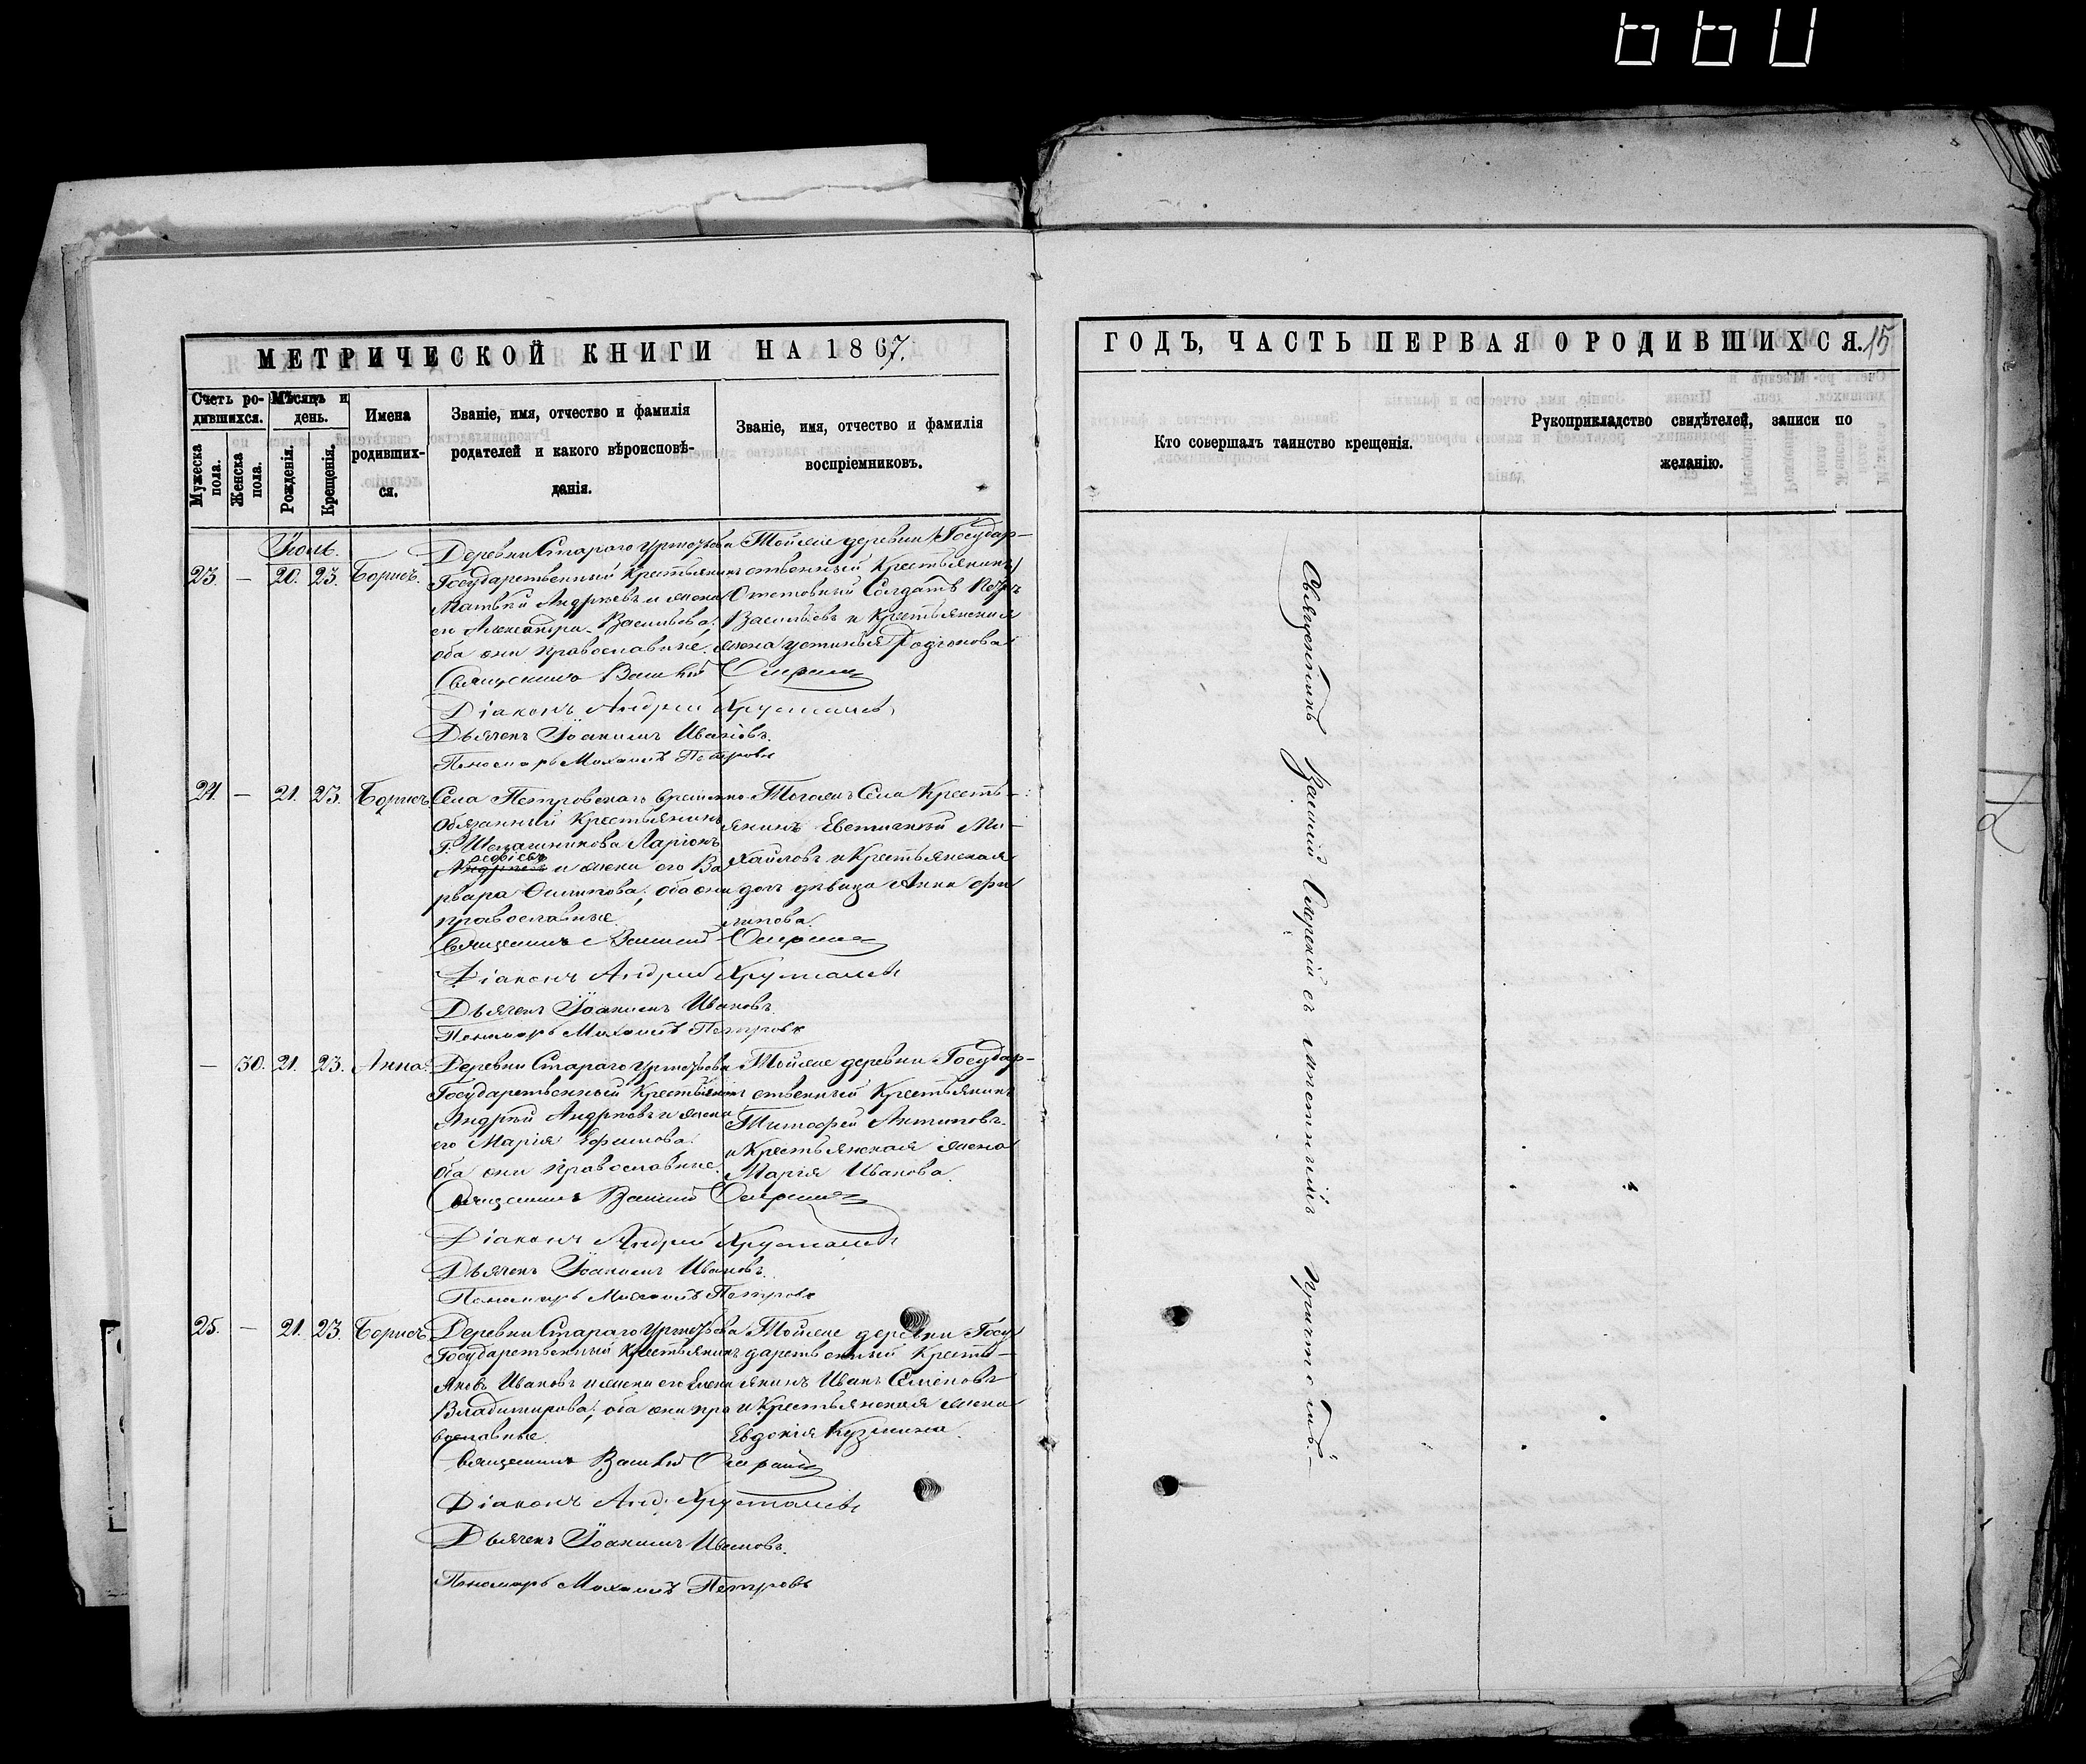 МЕТРИЧЕСКОЙ КНИГИ НА 1867.
Счетъ ро-
дившихся.
Мужеска
пола.
Женска
пола.
Мѣсяцъ и
день.
Рожденія.
Крещенія.
Имена
родивших-
ся.
Званіе, имя, отчество и фамилія
родителей и какого вѣроисповѣ-
данія.
Званіе, имя, отчество и фамилія
воспріемниковъ.
23. — 20. 23. Борисъ.
Деревни Стараго
Государственный Крестьянинъ
Матвѣй Андреевъ и жена
его Александра Васильева,
оба они православные.
Тойже деревни Государ-
ственный Крестьянинъ
Отставной Солдатъ Петръ
Васильевъ и Крестьянская
жена Устинья Родіонова
Священникъ Василій
Діаконъ Андрей Хрусталевъ
Дьячекъ Іоакимъ Ивановъ.
Пономарь Михаилъ Петровъ
24. — 21. 23. Борисъ
Села Петровскаго временно
Обязанный Крестьянинъ
Г. Ларіонъ
и жена его Ва
рвара Осипова, оба они
православные
Тогоже Села Кресть-
янинъ Евстафій Ми-
хайловъ и Крестьянская
дочь дѣвица Анна Фи
липова
Священникъ Василій
Діаконъ Андрей Хрусталевъ
Дьячекъ Іоакимъ Ивановъ.
Пономарь Михаилъ Петровъ
— 30. 21. 23. Анна.
Деревни Стараго
Государственный Крестьянинъ
Андрей Андреевъ и жена
его Марія Ефимова.
оба они православные.
Тойже деревни Государ-
ственный Крестьянинъ
Тимофей Антиповъ
и Крестьянская жена
Марія Иванова.
Священникъ Василій
Діаконъ Андрей Хрусталевъ
Дьячекъ Іоакимъ Ивановъ.
Пономарь Михаилъ Петровъ
25. — 21. 23. Борисъ
Деревни Стараго
Государственный Крестьянинъ
Яковъ Ивановъ и жена его Елена
Владимирова, оба они пра
вославные.
Тойже деревни Госу
дарственный Кресть-
янинъ Иванъ Семеновъ
и Крестьянская жена
Евдокія Кузмина.
Священникъ Василій
Діаконъ Анд. Хрусталевъ
Дьячекъ Іоакимъ Ивановъ.
Пономарь Михаилъ Петровъ
ГОДЪ, ЧАСТЬ ПЕРВАЯ О РОДИВШИХСЯ. 15
Кто совершалъ таинство крещенія.
Рукоприкладство свидѣтелей, записи по
желанію.
Священникъ Василій съ мѣстнымъ причтомъ.